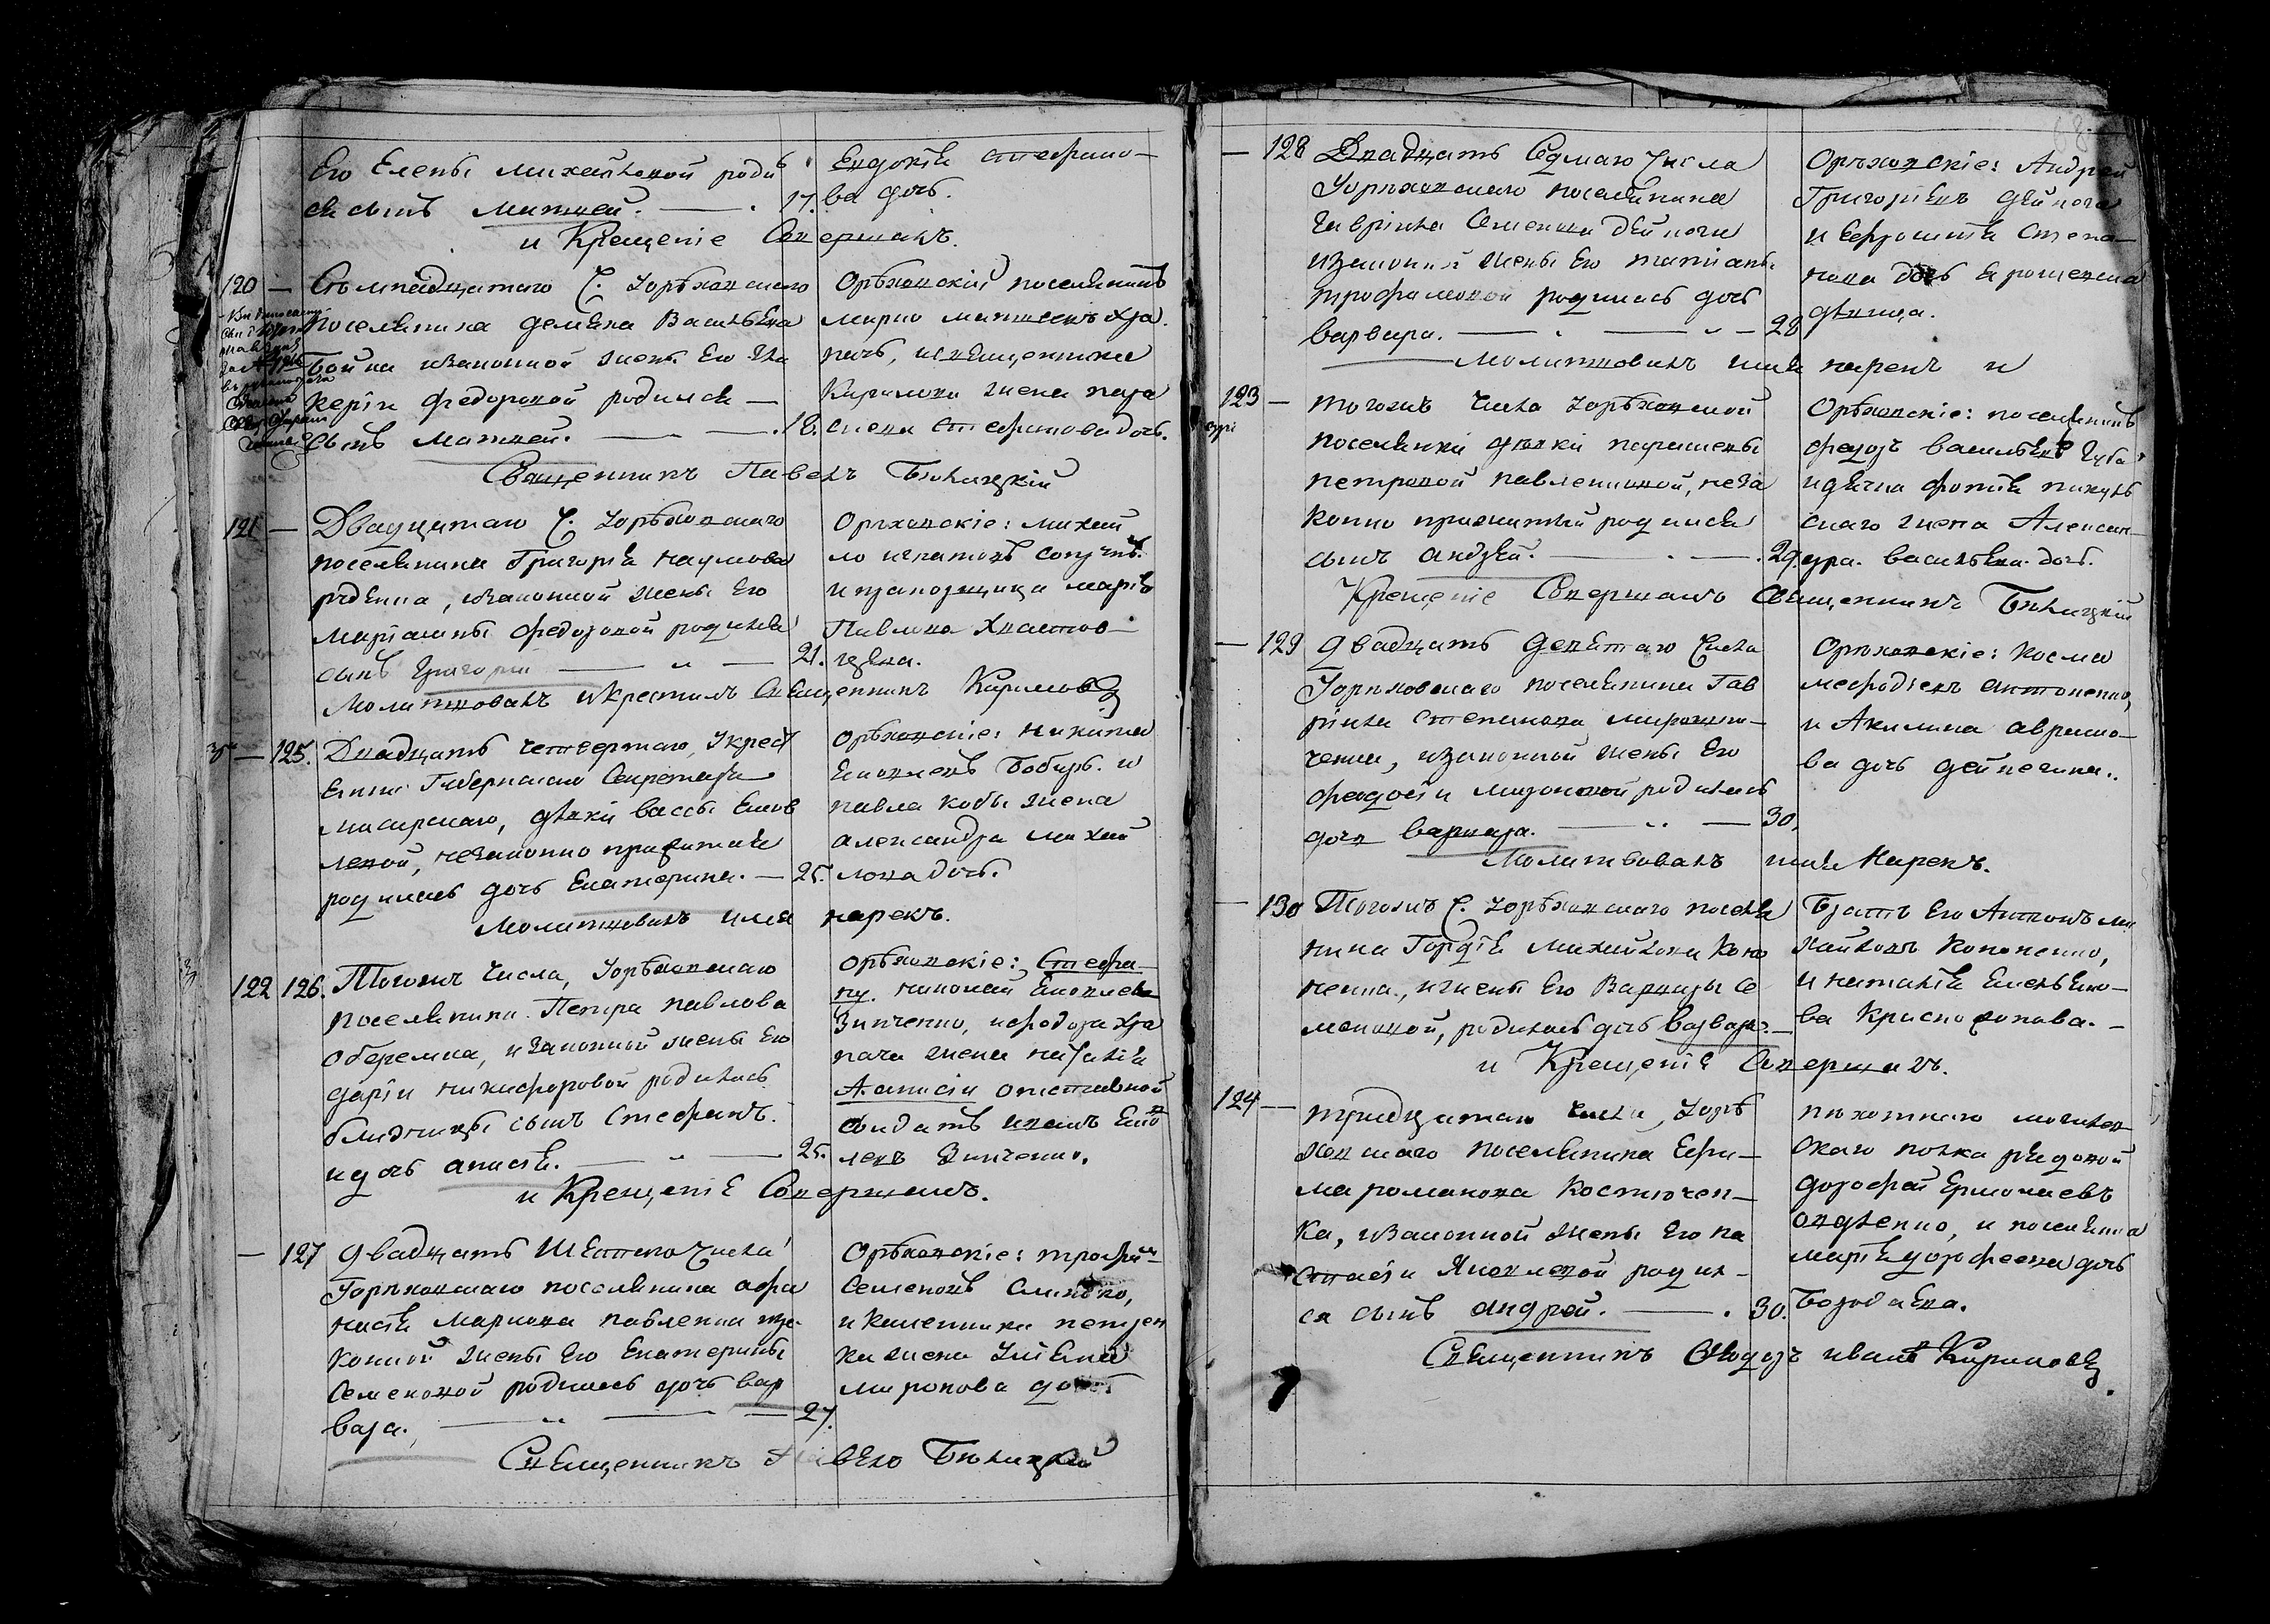 Его Елены Михайловой роди
ся сынъ Матвей. 17.
Евдокія Стефано-
ва дочь.
и Крещеніе Совершалъ.
120 — Семнадцатаго Ч. Уорѣховскаго
поселянина Демяна Васильева
Бойка изаконной жены Его Гли
керіи Федоровой родился —
сынъ Матвей. 18.
Орѣховскій поселянинъ
Марко Матвеевъ Хра
пачъ, исвященника
Кирилова жена пара
скева Стефанова дочь.
Священникъ Павелъ Бѣлицкій
121 — Двадцятаго Ч. Уорѣховскаго
поселянина Григорія Наумова
рѣденка, изаконной жены Его
Маріамны Федоровой родился
сынъ Григорій 21.
Орѣховскіе: Михай
ло Игнатовъ
ипрапорщица Марія
Павлова
Молитвовалъ и крестилъ Священникъ Кириловъ
125. Двадцять четвертаго, Укрест
Губернскаго Секретаря
дѣвки Вассы Яков
левой, незаконно прижитая
родилась дочь Екатерина. — 25.
Орѣховскіе: Никита
Яковлевъ Бобырь. и
Павла Кобы жена
Александра Михай
лова дочь.
Молитвовалъ имя нарекъ.
122 126. Тогожъ числа, Уорѣховскаго
поселянина Петра Павлова
Оберемка, изаконной жены Его
Даріи Никифоровой родились
близницы сынъ Стефанъ.
идочь Анисія. 25.
Орѣховскіе: Стефа-
ну. Николай Яковлевъ
Зинченко, иФедора Хра
пача жена Наталія
Анисіи отставной
солдатъ Иванъ Яков
левъ Зинченко.
и Крещеніе Совершалъ.
— 127 Двадцать Шестого Числа
Горѣховскаго поселянина Афа
насія Маркова Павленка иза-
конной жены Его Екатерины
Семеновой родилась дочь Вар
вара. 27.
Орѣховскіе: Трофим
Семеновъ Слинько,
и Каленника Петрен
ка жена Улияна
Миронова дочь
Священникъ Павелъ Бѣлицкій
— 128 Двадцать Седмаго Числа
Уорѣховскаго поселянина
Гавріила Семенова Дейнеги
изаконной жены Его Татіаны
Трофимовой родилась дочь
Варвара. 28
Орѣховскіе: Андрей
Григоріевъ Дейнега
и Ефросинія Степа-
нова дочь Ярошенкова
дѣвица.
Молитвовалъ имя нарекъ и
123 — Тогожъ числа Уорѣховской
поселянки дѣвки
Петровой Павленковой, неза
конно прижитый родился
сынъ Андрей. 29.
Орѣховскіе: поселянинъ
Федоръ Васильевъ Губа
жена Алексан-
дра. Васильева дочь.
Крещеніе Совершалъ Священникъ Бѣлицкій
— 129 Двадцать Девятаго Числа
Уорѣховскаго поселянина Гав
ріила Степанова Мирошни-
ченка, изаконной жены Его
Феодосіи Мироновой родилась
дочь Варвара. 30.
Орѣховскіе: Косма
Мефодіевъ Антоненко,
и Акилина Авраамо-
ва дочь Дейнегина.
Молитвовалъ имя Нарекъ.
— 130 Тогожъ Ч. Уорѣховскаго поселя
нина Гордѣя Михайлова Коно
ненка, ижены Его Варвары Се
меновой, родилась дочь Варвара. —
Братъ Его Антонъ Ми
хайловъ Кононенко,
и Наталія
ва
и Крещеніе Совершалъ.
124 — Тридцятаго числа, Уорѣ
ховскаго поселянина Ефи-
ма Романова Костючен-
ка, изаконной жены Его На
стасіи Яковлевой родил-
ся сынъ Андрей. 30.
пѣхотнаго могилев
скаго полка рядовой
Дорофей Ермолаевъ
и поселянка
Марія Дорофеева дочь
Бородаева.
Священникъ Феодоръ Ивановъ Кириловъ